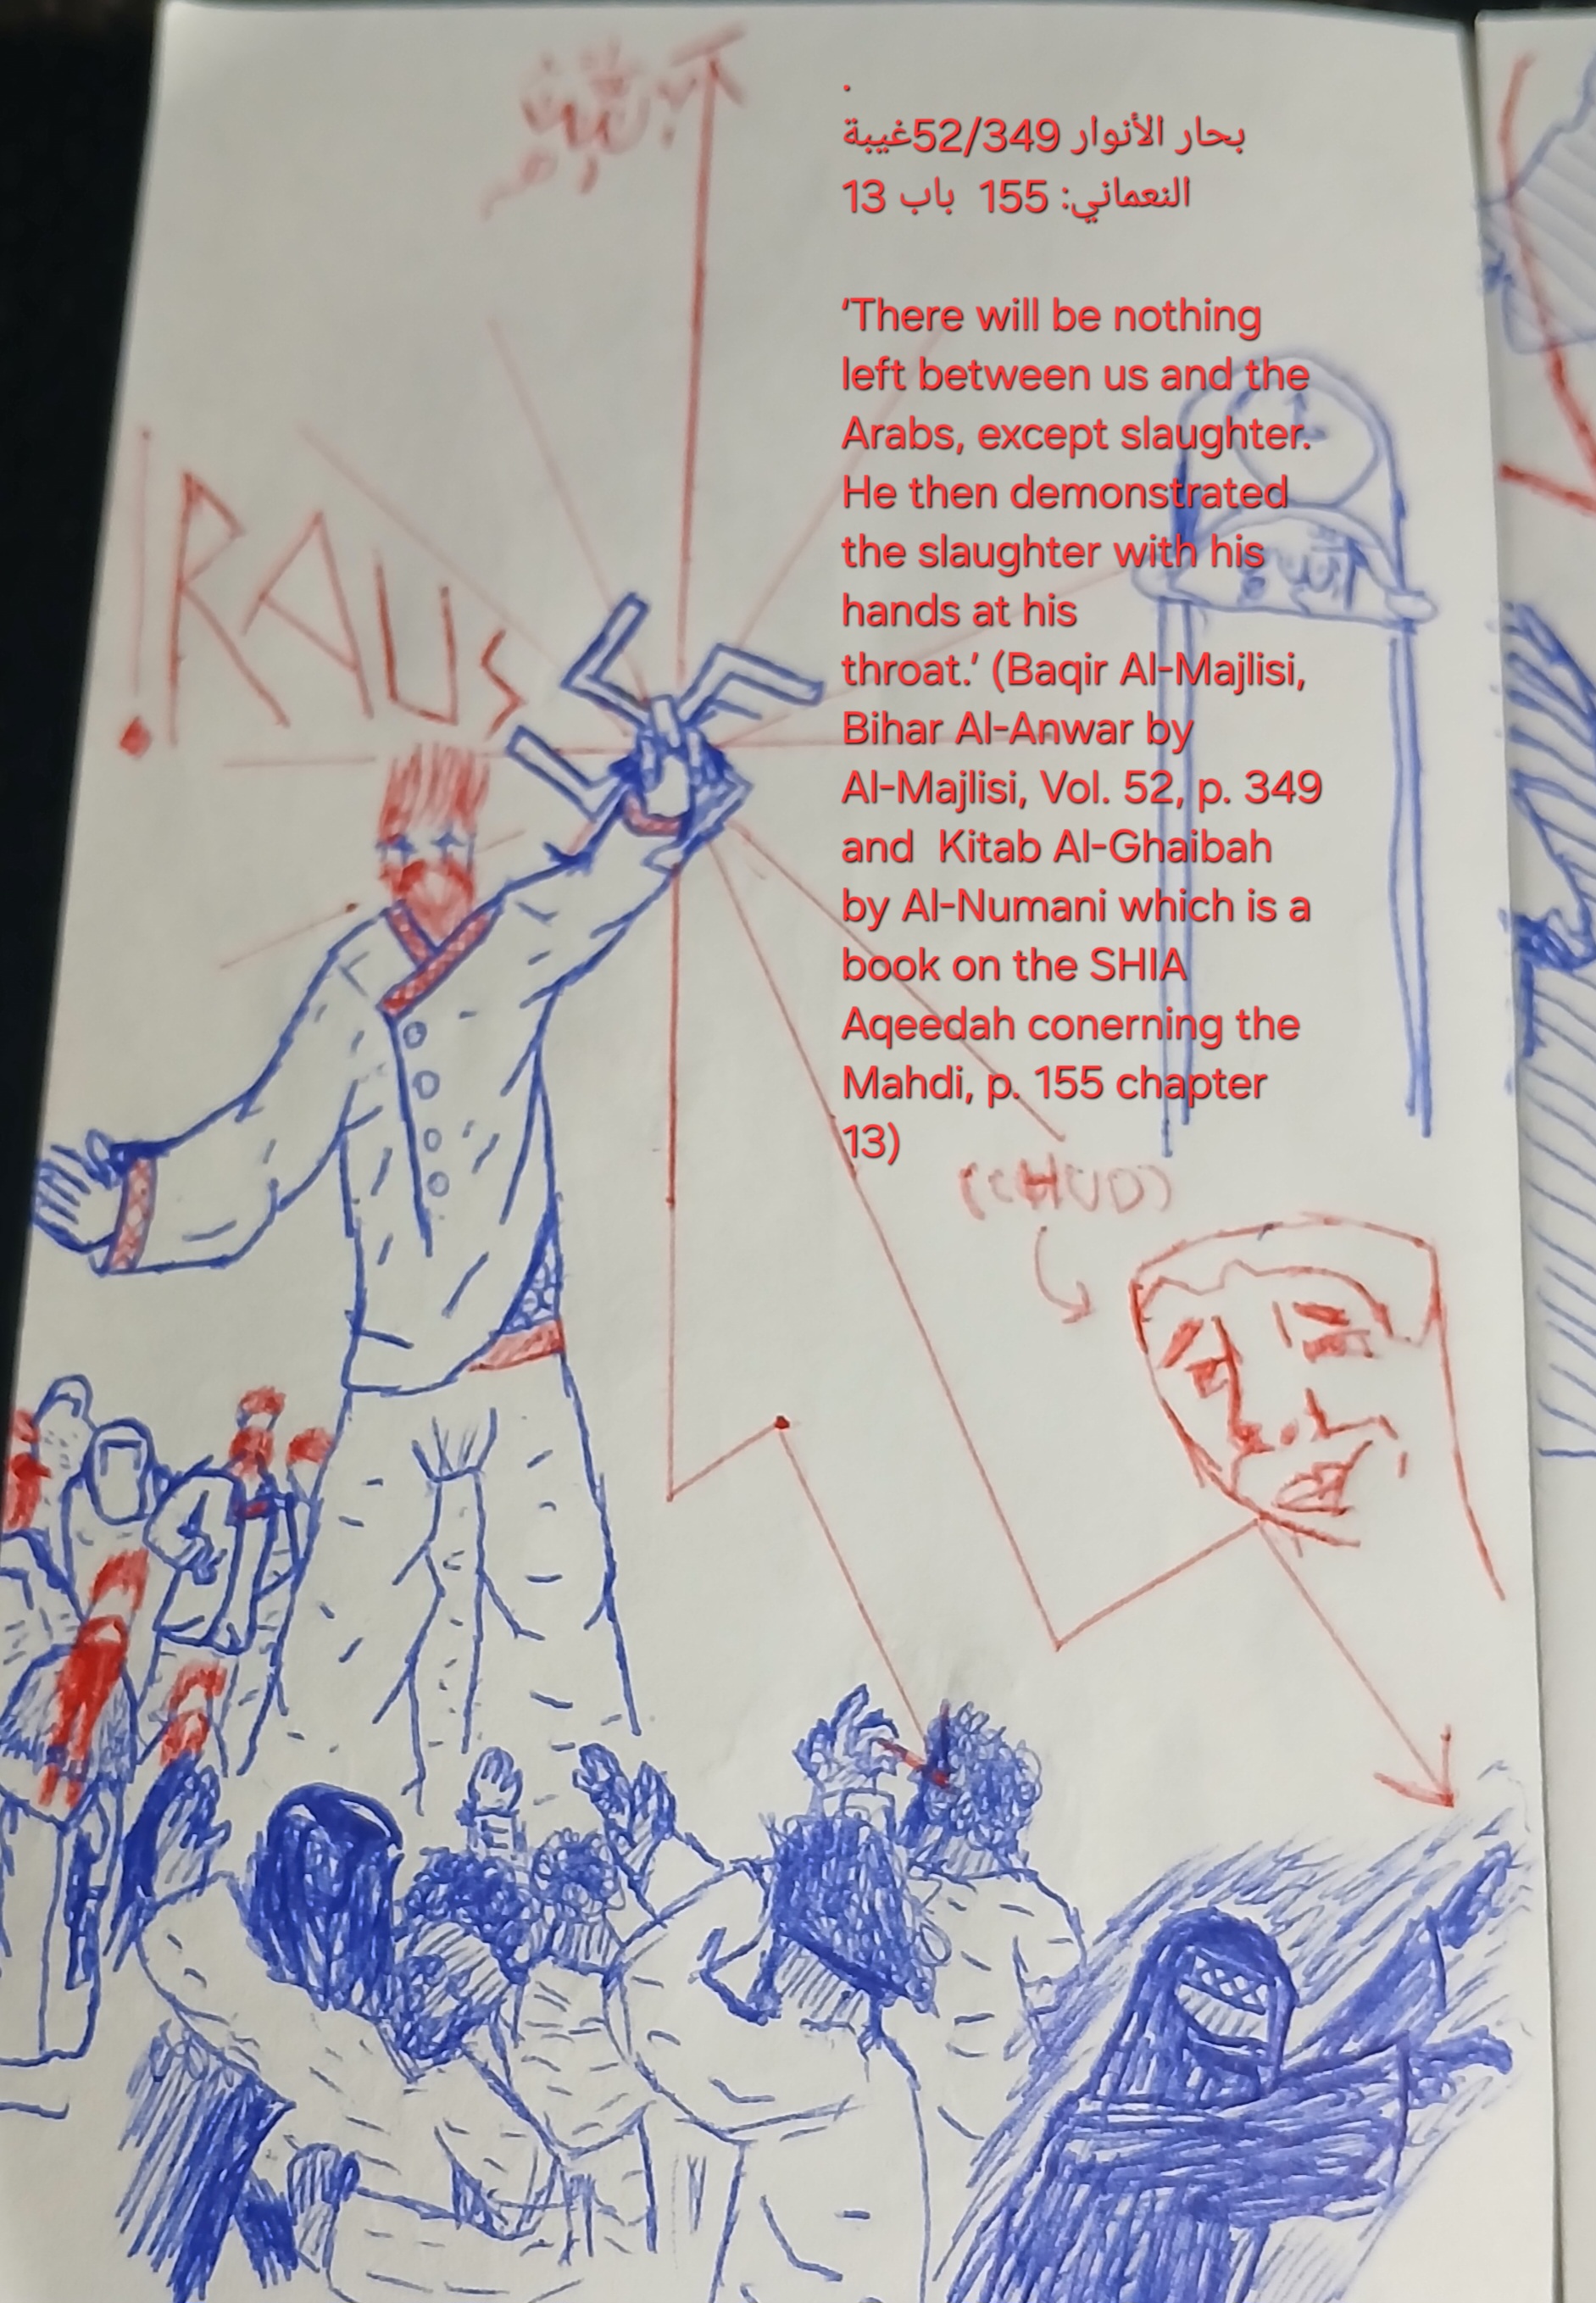 .
بحار الأنوار 52/349غيبة
النعماني: 155 باب 13
‘There will be nothing
left between us and the
Arabs, except slaughter.
He then demonstrated
the slaughter with his
hands at his
throat.’ (Baqir Al-Majlisi,
Bihar Al-Anwar by
Al-Majlisi, Vol. 52, p. 349
and Kitab Al-Ghaibah
by Al-Numani which is a
book on the SHIA
Aqeedah conerning the
Mahdi, p. 155 chapter
13)
!RAUS
(CHUD)